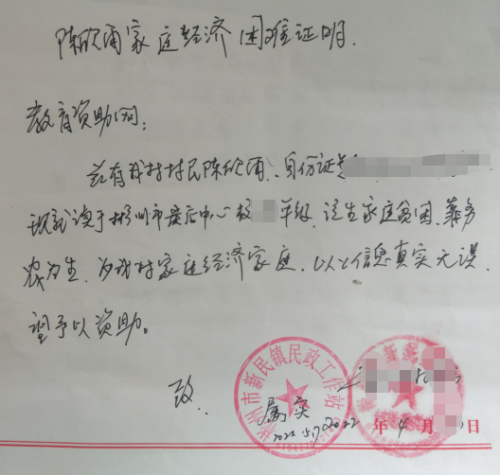 陈欣雨家庭经济困难证明.
教育资助网:
兹有我村村民陈欣雨、身份证号
现就读于彬州市度店中心校 年级, 该生家庭贫困, 靠务
农为生, 为我村家庭经济家庭, 以上信息真实无误.
望予以资助。
致.
彬州市新民镇民政工作站
属实
2022
年 4 月 日